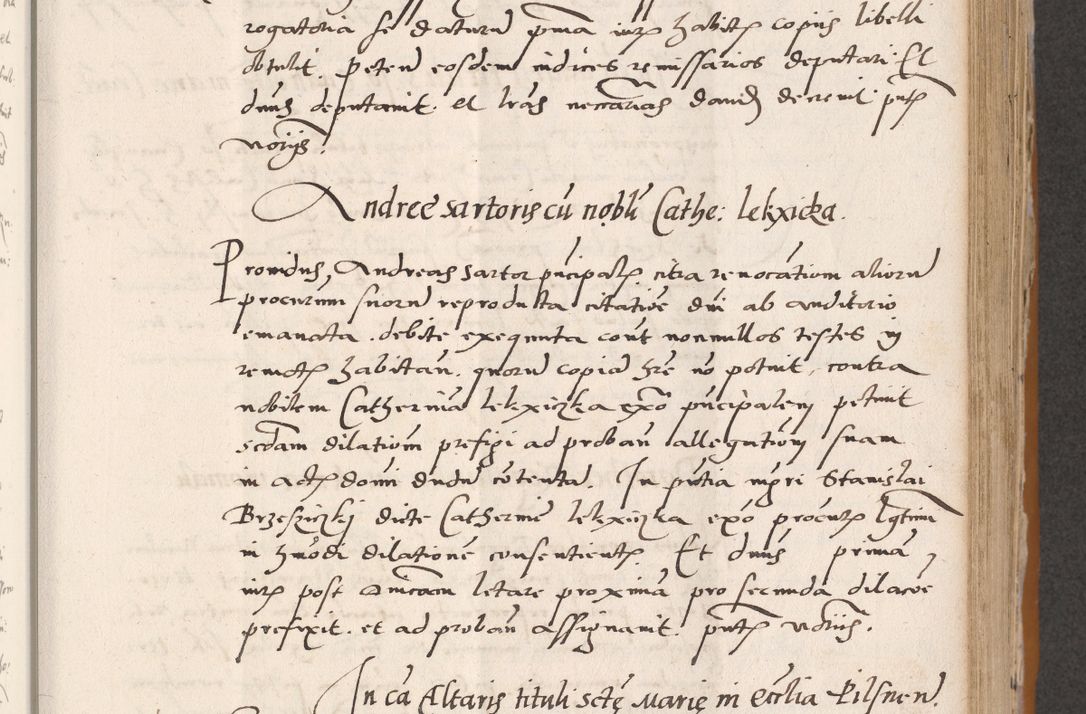 rogatoria se daturum prima iuris habitis copiis libelli
obtulit. Peten eosdem iudices remissarios deputari. Et
dnus deputavit. et lras necrarias dandas decrevit. pntibus
notariis.
Andree sartoris cum nobli Cathe: lekxicka.
Providus, Andreas Sartor principalis citra revocationem aliorum
procuratorum suorum reproducta citatione dni ab auditorio
emanata. debite exequuta cont nonnullos testes in
remotis habitan. quorum copiam hre non potuit, contra
nobilem Catherinam lekxiczka exo principalem petivit
secdam dilationem prefigi ad proban allegationem suam
in actis domi dudum contenta. In pntia mgri Stanislai
Brzesziczki dicte Catherine lekxiczka exo procuratoris lgtimi
in hmodi dilatione consentientis. Et dnus primam
iuris post Dnicam letare proximam pro secunda dilacoe
prefixit. et ad proban assignavit. pntibus notariis.
In ca Altaris tituli scte Marie in Ecclia Pilsnen.